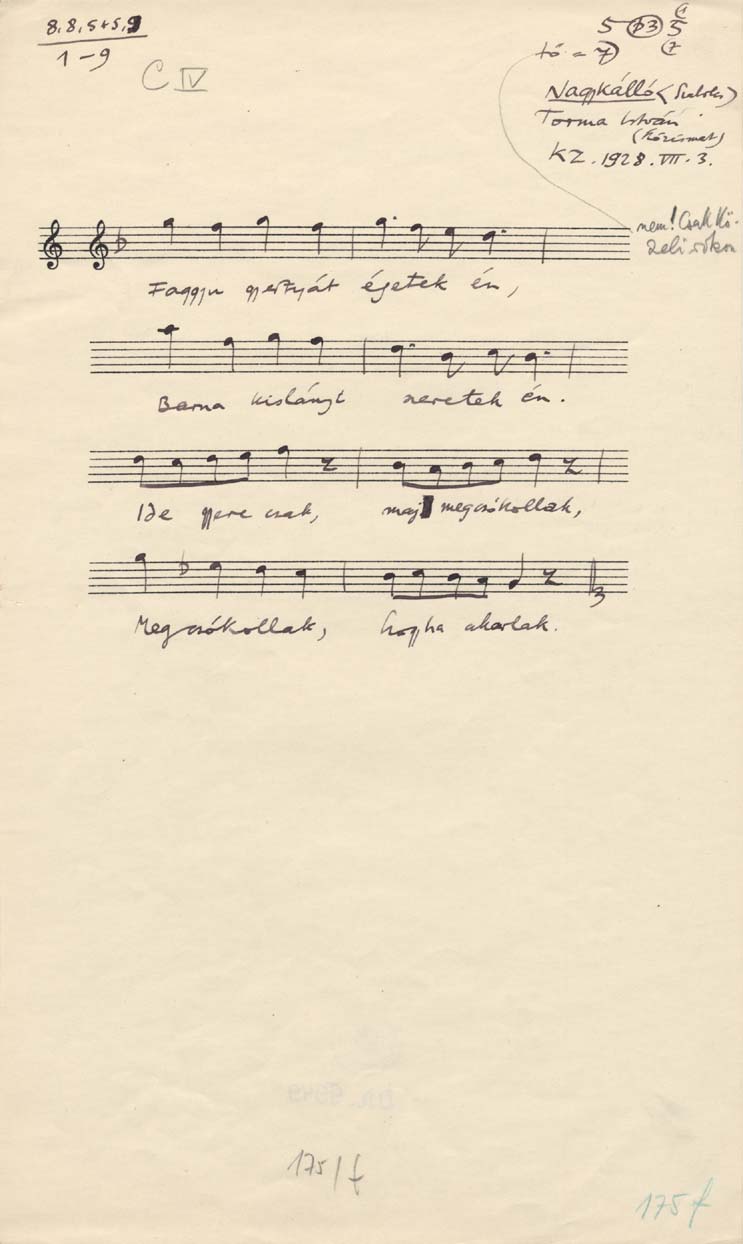 8, 8, 5+5, 9
1-9
C IV
5 (b3) 5
tő = 7
Nagykálló (Szabolcs)
Torma István
KZ. 1928. VII. 3.
nem! Csak kö-
zeli rokon
Faggyu gyertyát égetek én,
Barna kislányt szeretek én.
Ide gyere csak, maj megcsókollak,
Megcsókollak, hogyha akarlak.
175/f
175 f